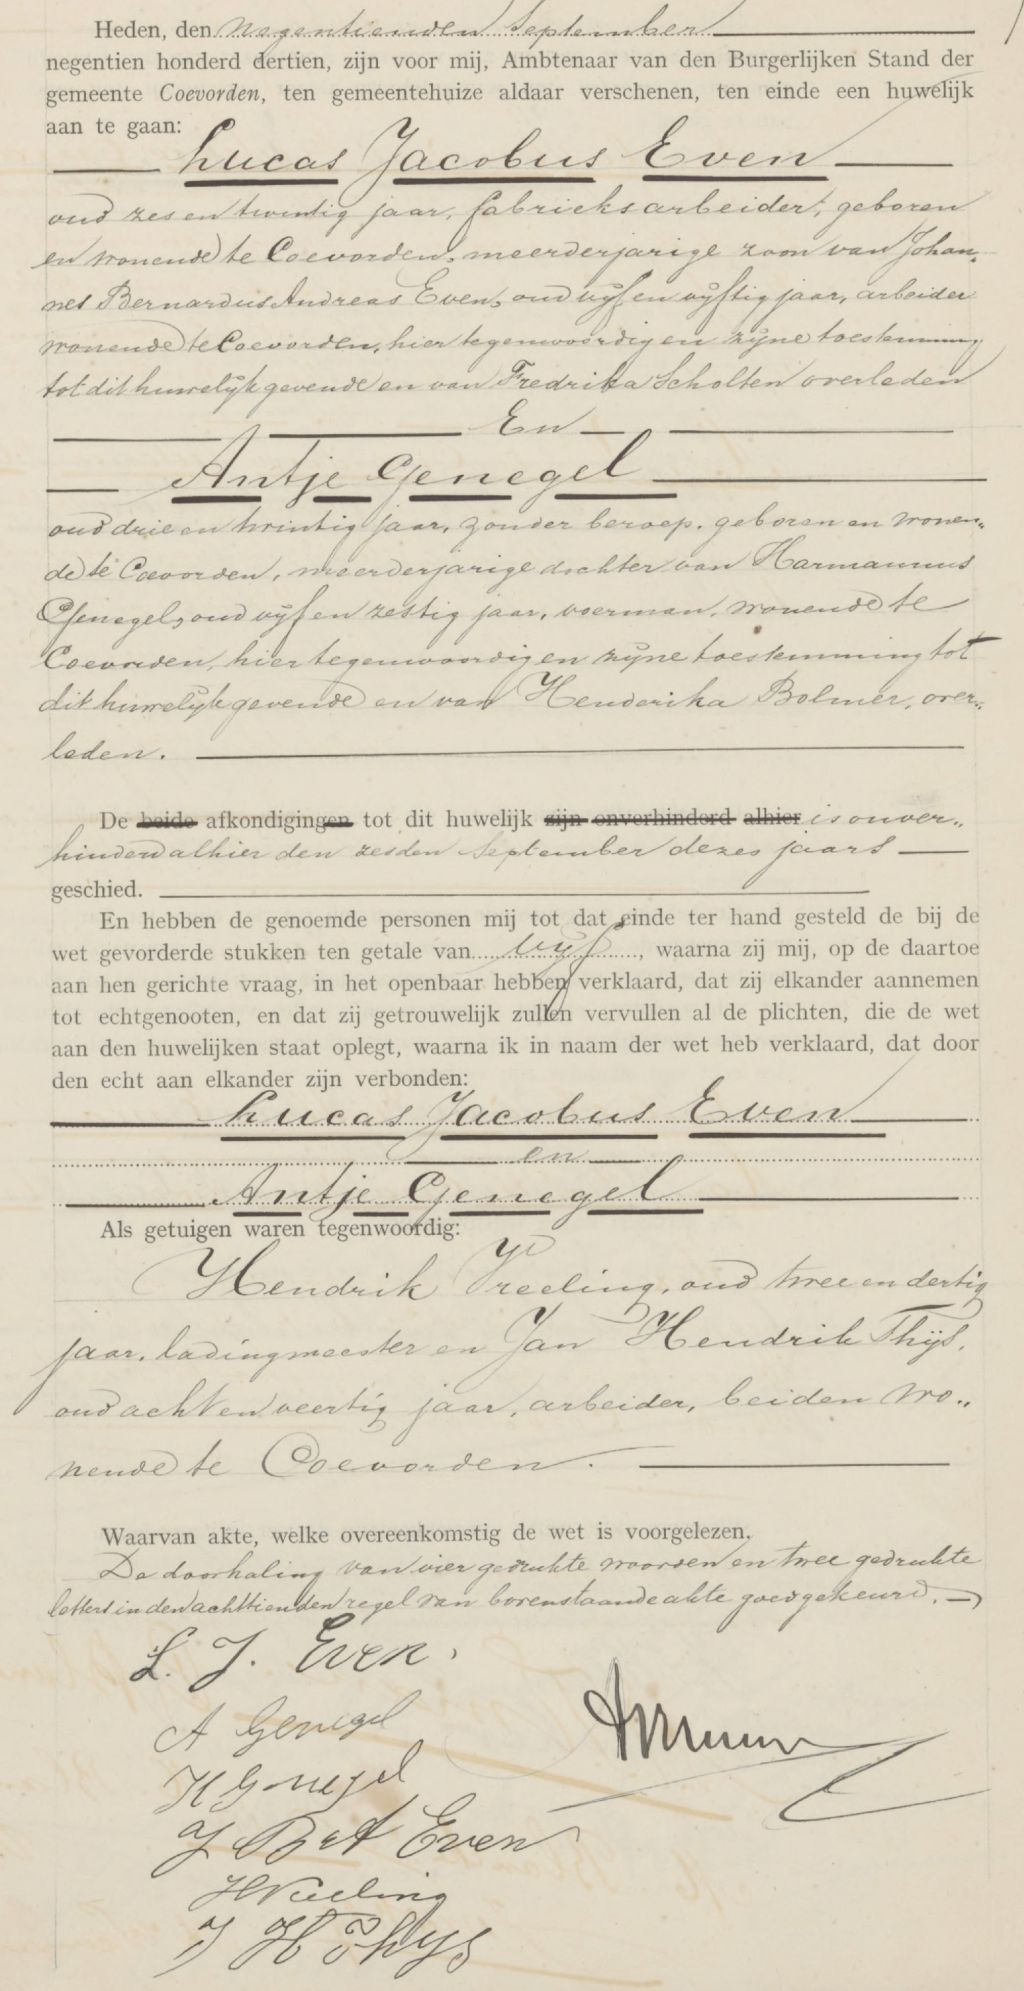 Heden, den negentienden September
negentien honderd dertien, zijn voor mij, Ambtenaar van den Burgerlijken Stand der
gemeente Coevorden, ten gemeentehuize aldaar verschenen, ten einde een huwelijk
aan te gaan:
Lucas Jacobus Even
oud zes en twintig jaar, fabrieksarbeider, geboren
en wonende te Coevorden, meerderjarige zoon van Johan„
nes Bernardus Andreas Even, oud vijf en vijftig jaar, arbeider
wonende te Coevorden, hier tegenwoordig en zijne toestemming
tot dit huwelijk gevende en van Fredrika Scholten overleden
En
Antje Genegel
oud drie en twintig jaar, zonder beroep, geboren en wonen„
de te Coevorden, meerderjarige dochter van Harmannus
Genegel, oud vijf en zestig jaar, voerman, wonende te
Coevorden, hier tegenwoordig en zijne toestemming tot
dit huwelijk gevende en van Henderika Bolmer, over„
leden.
De beide afkondigingen tot dit huwelijk zijn onverhinderd alhier is onver„
hinderd alhier den zesden September dezes jaars
geschied.
En hebben de genoemde personen mij tot dat einde ter hand gesteld de bij de
wet gevorderde stukken ten getale van vijf, waarna zij mij, op de daartoe
aan hen gerichte vraag, in het openbaar hebben verklaard, dat zij elkander aannemen
tot echtgenooten, en dat zij getrouwelijk zullen vervullen al de plichten, die de wet
aan den huwelijken staat oplegt, waarna ik in naam der wet heb verklaard, dat door
den echt aan elkander zijn verbonden:
Lucas Jacobus Even
en
Antje Genegel
Als getuigen waren tegenwoordig:
Hendrik Vreeling, oud twee en dertig
jaar, ladingmeester en Jan Hendrik Thijs,
oud acht en veertig jaar, arbeider, beiden wo„
nende te Coevorden.
Waarvan akte, welke overeenkomstig de wet is voorgelezen.
De doorhaling van vier gedrukte woorden en twee gedrukte
letters in den achttienden regel van bovenstaande akte goedgekeurd.
L. J. Even.
A Genegel
H Genegel
J B A Even
H Vreeling
J H Thijs